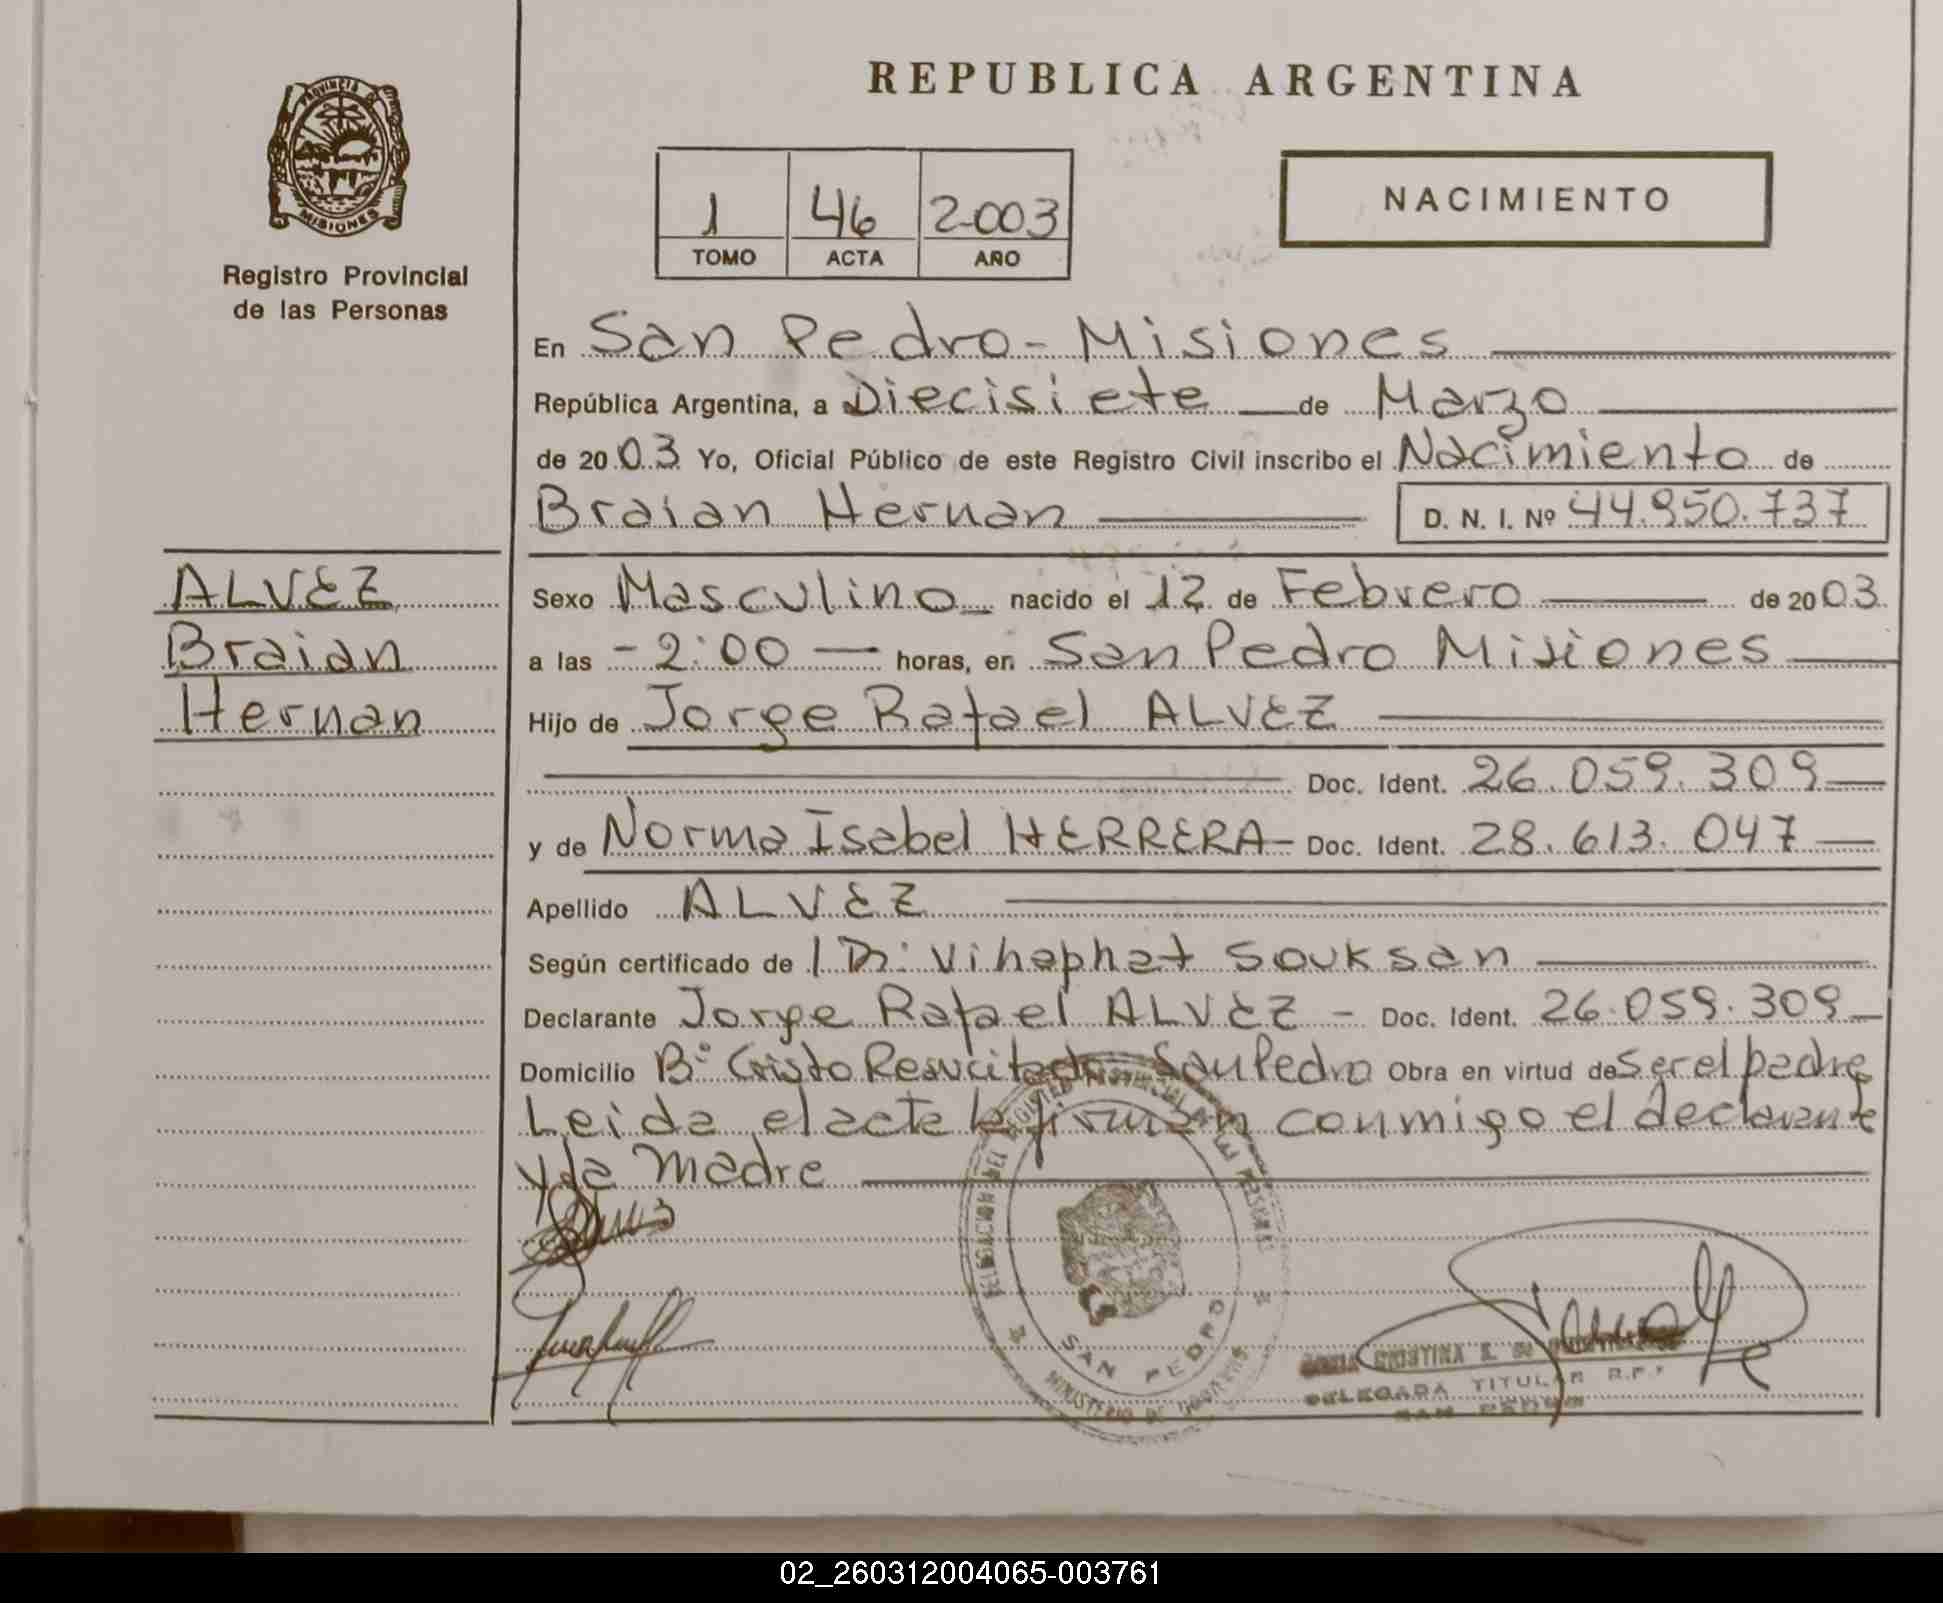 REPUBLICA ARGENTINA
PROVINCIA DE
MISIONES
Registro Provincial
de las Personas
1 46 2003
TOMO ACTA AÑO
NACIMIENTO
En San Pedro - Misiones
República Argentina, a Diecisiete de Marzo
de 2003 Yo, Oficial Público de este Registro Civil inscribo el Nacimiento de
Braian Hernan D. N. I. Nº 44.950.737
ALVEZ
Braian
Hernan
Sexo Masculino nacido el 12 de Febrero de 2003
a las - 2:00 — horas, en San Pedro Misiones
Hijo de Jorge Rafael ALVEZ
Doc. Ident. 26.059.309
y de Norma Isabel HERRERA - Doc. Ident. 28.613.047
Apellido ALVEZ
Según certificado de Dr. Vihaphat Souksan
Declarante Jorge Rafael ALVEZ - Doc. Ident. 26.059.309
Domicilio Bº Cristo Resucitado San Pedro Obra en virtud de ser el padre
Leida el acta la firman conmigo el declarante
y la madre
SAN PEDRO
MINISTERIO DE
CRISTINA
DELEGADA TITULAR R.P.
SAN PEDRO
02_260312004065-003761